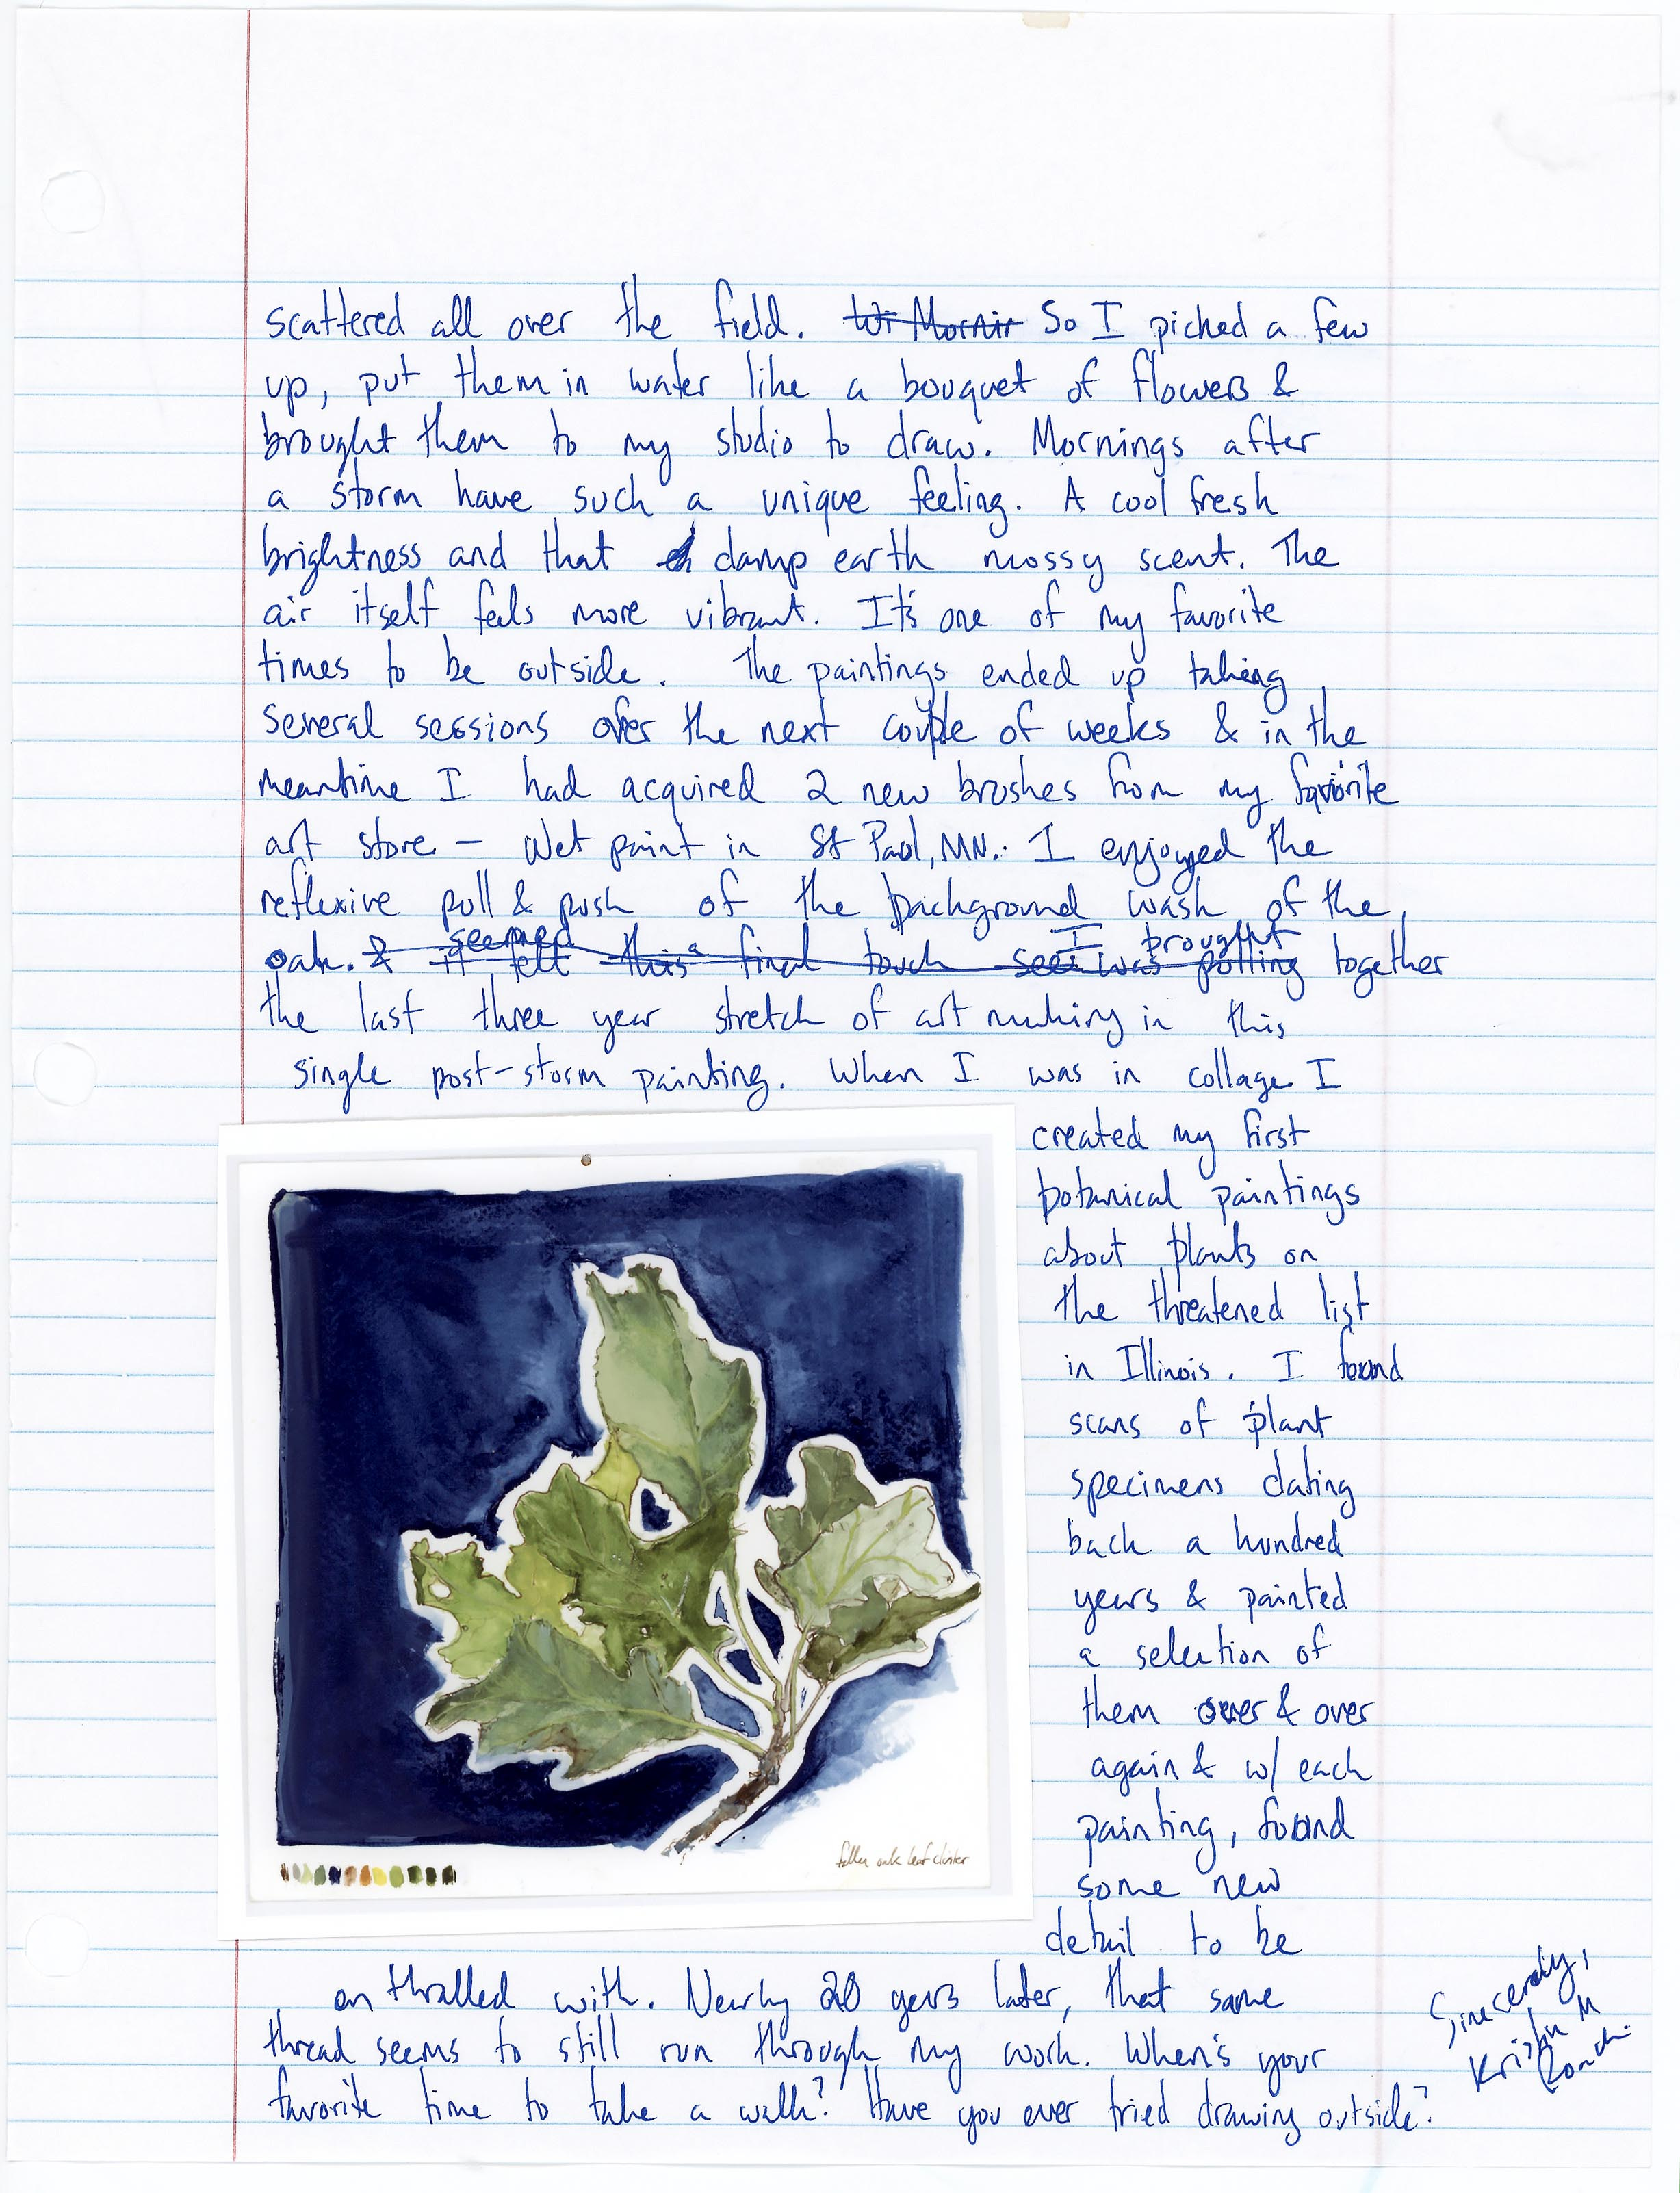 scattered all over the field. ~~Wi Mornir~~ So I picked a few
up, put them in water like a bouquet of flowers &
brought them to my studio to draw. Mornings after
a storm have such a unique feeling. A cool fresh
brightness and that damp earth mossy scent. The
air itself feels more vibrant. It's one of my favorite
times to be outside. The paintings ended up taking
several sessions over the next couple of weeks & in the
meantime I had acquired 2 new brushes from my favorite
art store - Wet paint in St Paul, MN. I enjoyed the
reflexive pull & push of the background wash of the
oak. ~~& it felt seemed this a final touch see I was pulling~~ I brought together
the last three year stretch of art making in this
single post-storm painting. When I was in collage I
created my first
botanical paintings
about plants on
the threatened list
in Illinois. I found
scans of plant
specimens dating
back a hundred
years & painted
a selection of
them over & over
again & w/ each
painting, found
some new
detail to be
enthralled with. Nearly 20 years later, that same
thread seems to still run through my work. When's your
favorite time to take a walk? Have you ever tried drawing outside?
Sincerely,
Kristin M
Ronch
fallen oak leaf cluster